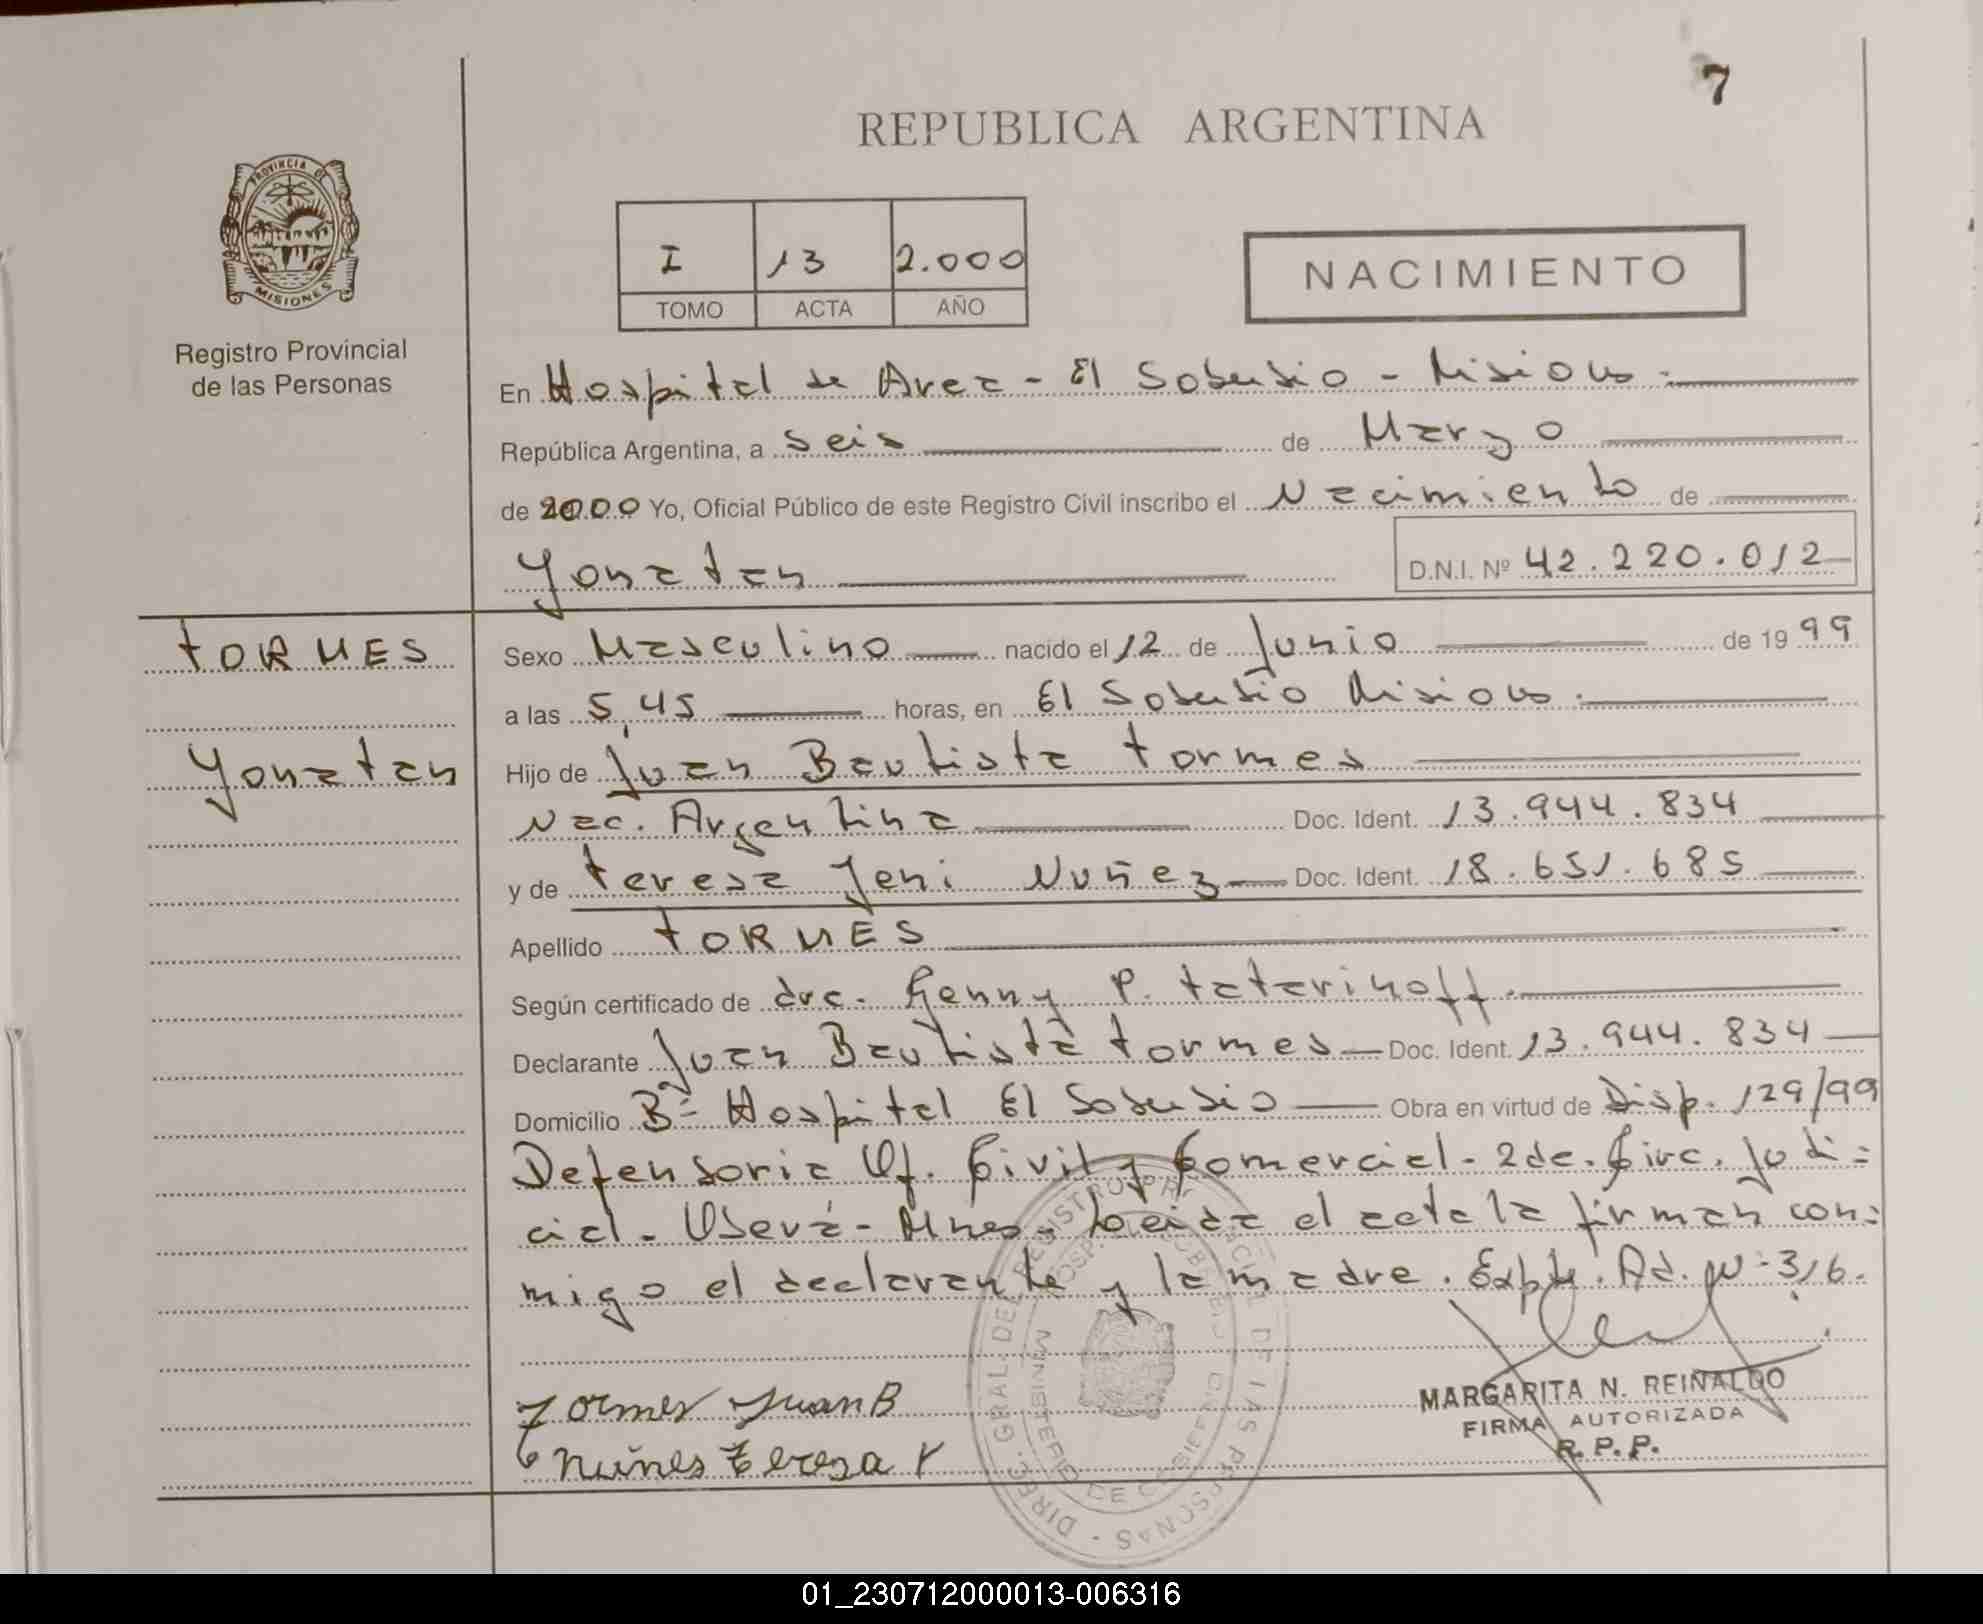 7
REPUBLICA ARGENTINA
PROVINCIA DE
MISIONES
Registro Provincial
de las Personas
I 13 2.000
TOMO ACTA AÑO
NACIMIENTO
En Hospital de Area - El Soberbio - Misiones.
República Argentina, a seis de Marzo
de 2000 Yo, Oficial Público de este Registro Civil inscribo el Nacimiento de
Yonatan D.N.I. Nº 42.220.012
TORMES Sexo Masculino nacido el 12 de Junio de 1999
a las 5,45 horas, en El Soberbio Misiones.
Yonatan Hijo de Juan Bautista Tormes
Nac. Argentina Doc. Ident. 13.944.834
y de Teresa Yeni Nuñez Doc. Ident. 18.651.685
Apellido TORMES
Según certificado de dra. Genny P. Tatarinoff.
Declarante Juan Bautista Tormes Doc. Ident. 13.944.834
Domicilio Bº Hospital El Soberbio Obra en virtud de Disp. 129/99
Defensoria Of. Civil y Comercial - 2da. Circ. Judi=
cial - Oberá - Mnes. Leida el acta la firman con=
migo el declarante y la madre. Expte. Ad. Nº 316.
Tormes Juan B
Nuñes Teresa Y
MARGARITA N. REINALDO
FIRMA AUTORIZADA
R. P. P.
DIREC. GRAL. DEL REGISTRO PROVINCIAL DE LAS PERSONAS
MINISTERIO DE GOBIERNO
01_230712000013-006316